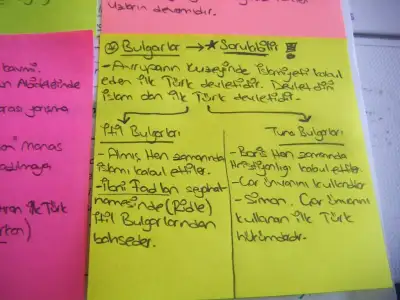 Uzların devamıdır.
④ Bulgarlar → * Sorulabilir !
- Avrupanın kuzeyinde islamiyeti kabul
eden ilk Türk devletidir. Devlet dini
islam olan ilk Türk devletidir.
İtil Bulgarları
- Almış Han zamanında
islamı kabul ettiler.
- İbni Fadlan seyahat
namesinde (Rıdle)
itil Bulgarlarından
bahseder.
Tuna Bulgarları
- Boris Han zamanında
Hristiyanlığı kabul ettiler.
- Çar ünvanını kullandılar
- Simon, Çar ünvanını
kullanan ilk Türk
hükümdarıdır.
kavmi.
Abidelerinde
yarışma
Manas
ilk Türk